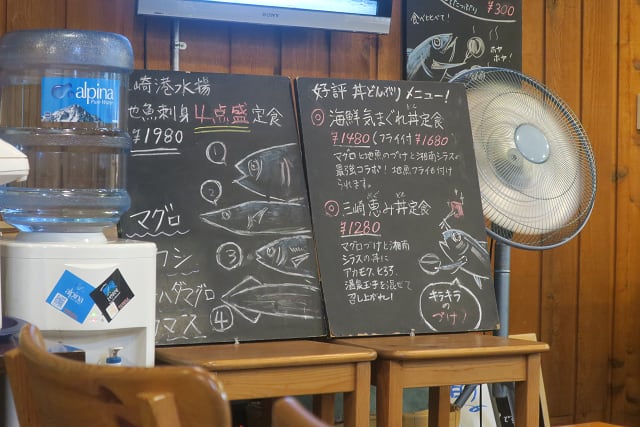 SONY
食べ比べて！
¥300
ホヤ
ホヤ
alpina
Pure Water
崎港水揚
地魚刺身4点盛定食
¥1980
①
②
③
④
マグロ
ワシ
ハダマグロ
カマス
好評 丼どんぶり メニュー！
◎海鮮気まぐれ丼定食
¥1480(フライ付¥1680)
マグロと地魚のづけと湘南シラスの
最強コラボ！地魚フライも付け
られます。
◎三崎恵み丼定食
¥1280
マグロづけと湘南
シラスの丼に
アカモク、とろろ、
温泉玉子を混ぜて
召し上がれ！
キラキラ
の
づけ！
alpina